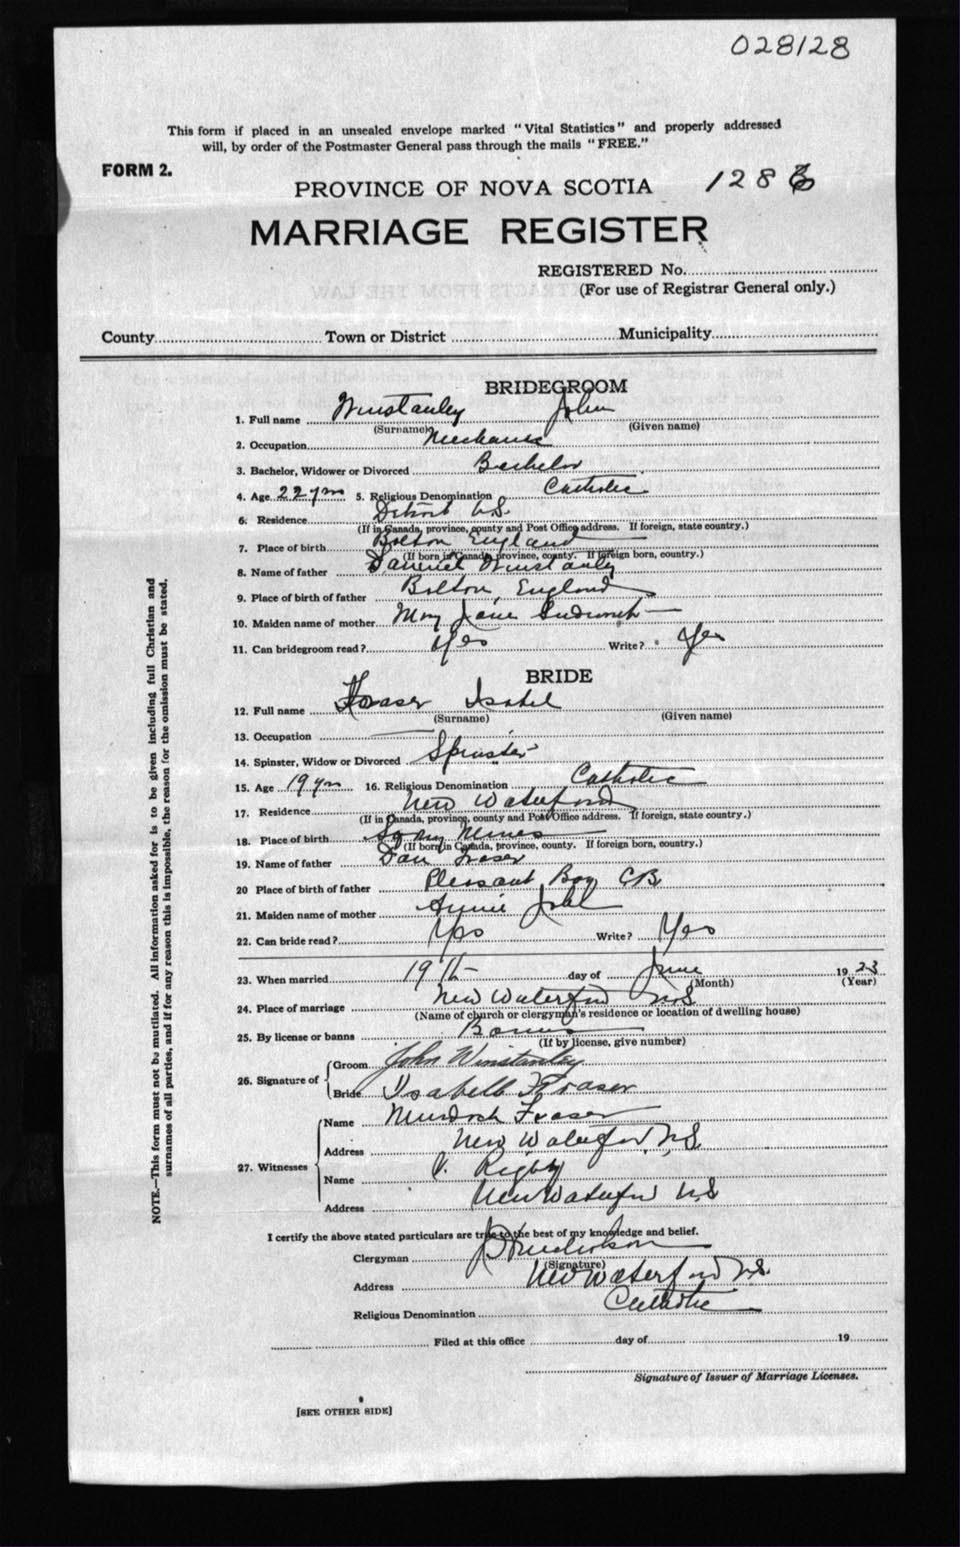 028128
This form if placed in an unsealed envelope marked "Vital Statistics" and properly addressed
will, by order of the Postmaster General pass through the mails "FREE."
FORM 2.
PROVINCE OF NOVA SCOTIA 128
MARRIAGE REGISTER
REGISTERED No.
(For use of Registrar General only.)
County Town or District Municipality
BRIDEGROOM
1. Full name Winstanley John
(Surname) (Given name)
2. Occupation Mechanic
3. Bachelor, Widower or Divorced Bachelor
4. Age 22 yrs 5. Religious Denomination Catholic
6. Residence Detroit U.S.
(If in Canada, province, county and Post Office address. If foreign, state country.)
7. Place of birth Bolton England
(If born in Canada, province, county. If foreign born, country.)
8. Name of father Winstanley
9. Place of birth of father Bolton, England
10. Maiden name of mother Mary Jane
11. Can bridegroom read? Yes Write? Yes
BRIDE
12. Full name Fraser Isabel
(Surname) (Given name)
13. Occupation
14. Spinster, Widow or Divorced Spinster
15. Age 19 yrs 16. Religious Denomination Catholic
17. Residence New Waterford
(If in Canada, province, county and Post Office address. If foreign, state country.)
18. Place of birth Mines
(If born in Canada, province, county. If foreign born, country.)
19. Name of father Dan Fraser
20 Place of birth of father Pleasant Bay CB
21. Maiden name of mother Annie
22. Can bride read? Yes Write? Yes
23. When married 19th day of June 1923
(Month) (Year)
24. Place of marriage New Waterford N.S.
(Name of church or clergyman's residence or location of dwelling house)
25. By license or banns Banns
(If by license, give number)
26. Signature of Groom John Winstanley
Bride Isabell Fraser
27. Witnesses Name Murdoch Fraser
Address New Waterford N.S.
Name Rigby
Address New Waterford N.S
I certify the above stated particulars are true to the best of my knowledge and belief.
Clergyman
(Signature)
Address New Waterford N.S.
Religious Denomination Catholic
Filed at this office day of 19
Signature of Issuer of Marriage Licenses.
[SEE OTHER SIDE]
NOTE.—This form must not be mutilated. All information asked for is to be given including full Christian and
surnames of all parties, and if for any reason this is impossible, the reason for the omission must be stated.